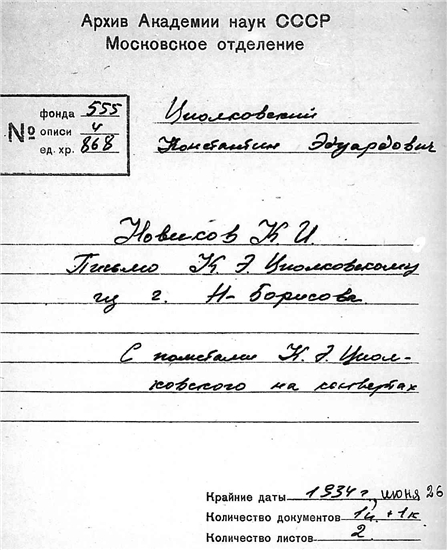 Архив Академии наук СССР
Московское отделение
№
фонда 555
описи 4
ед. хр. 868
Циолковский
Константин Эдуардович
Новиков К И.
Письмо К Э Циолковскому
из г. Н-Борисова
С пометами К. Э. Циол-
ковского на конвертах
Крайние даты 1934 г, июня 26
Количество документов 1п. + 1к
Количество листов 2